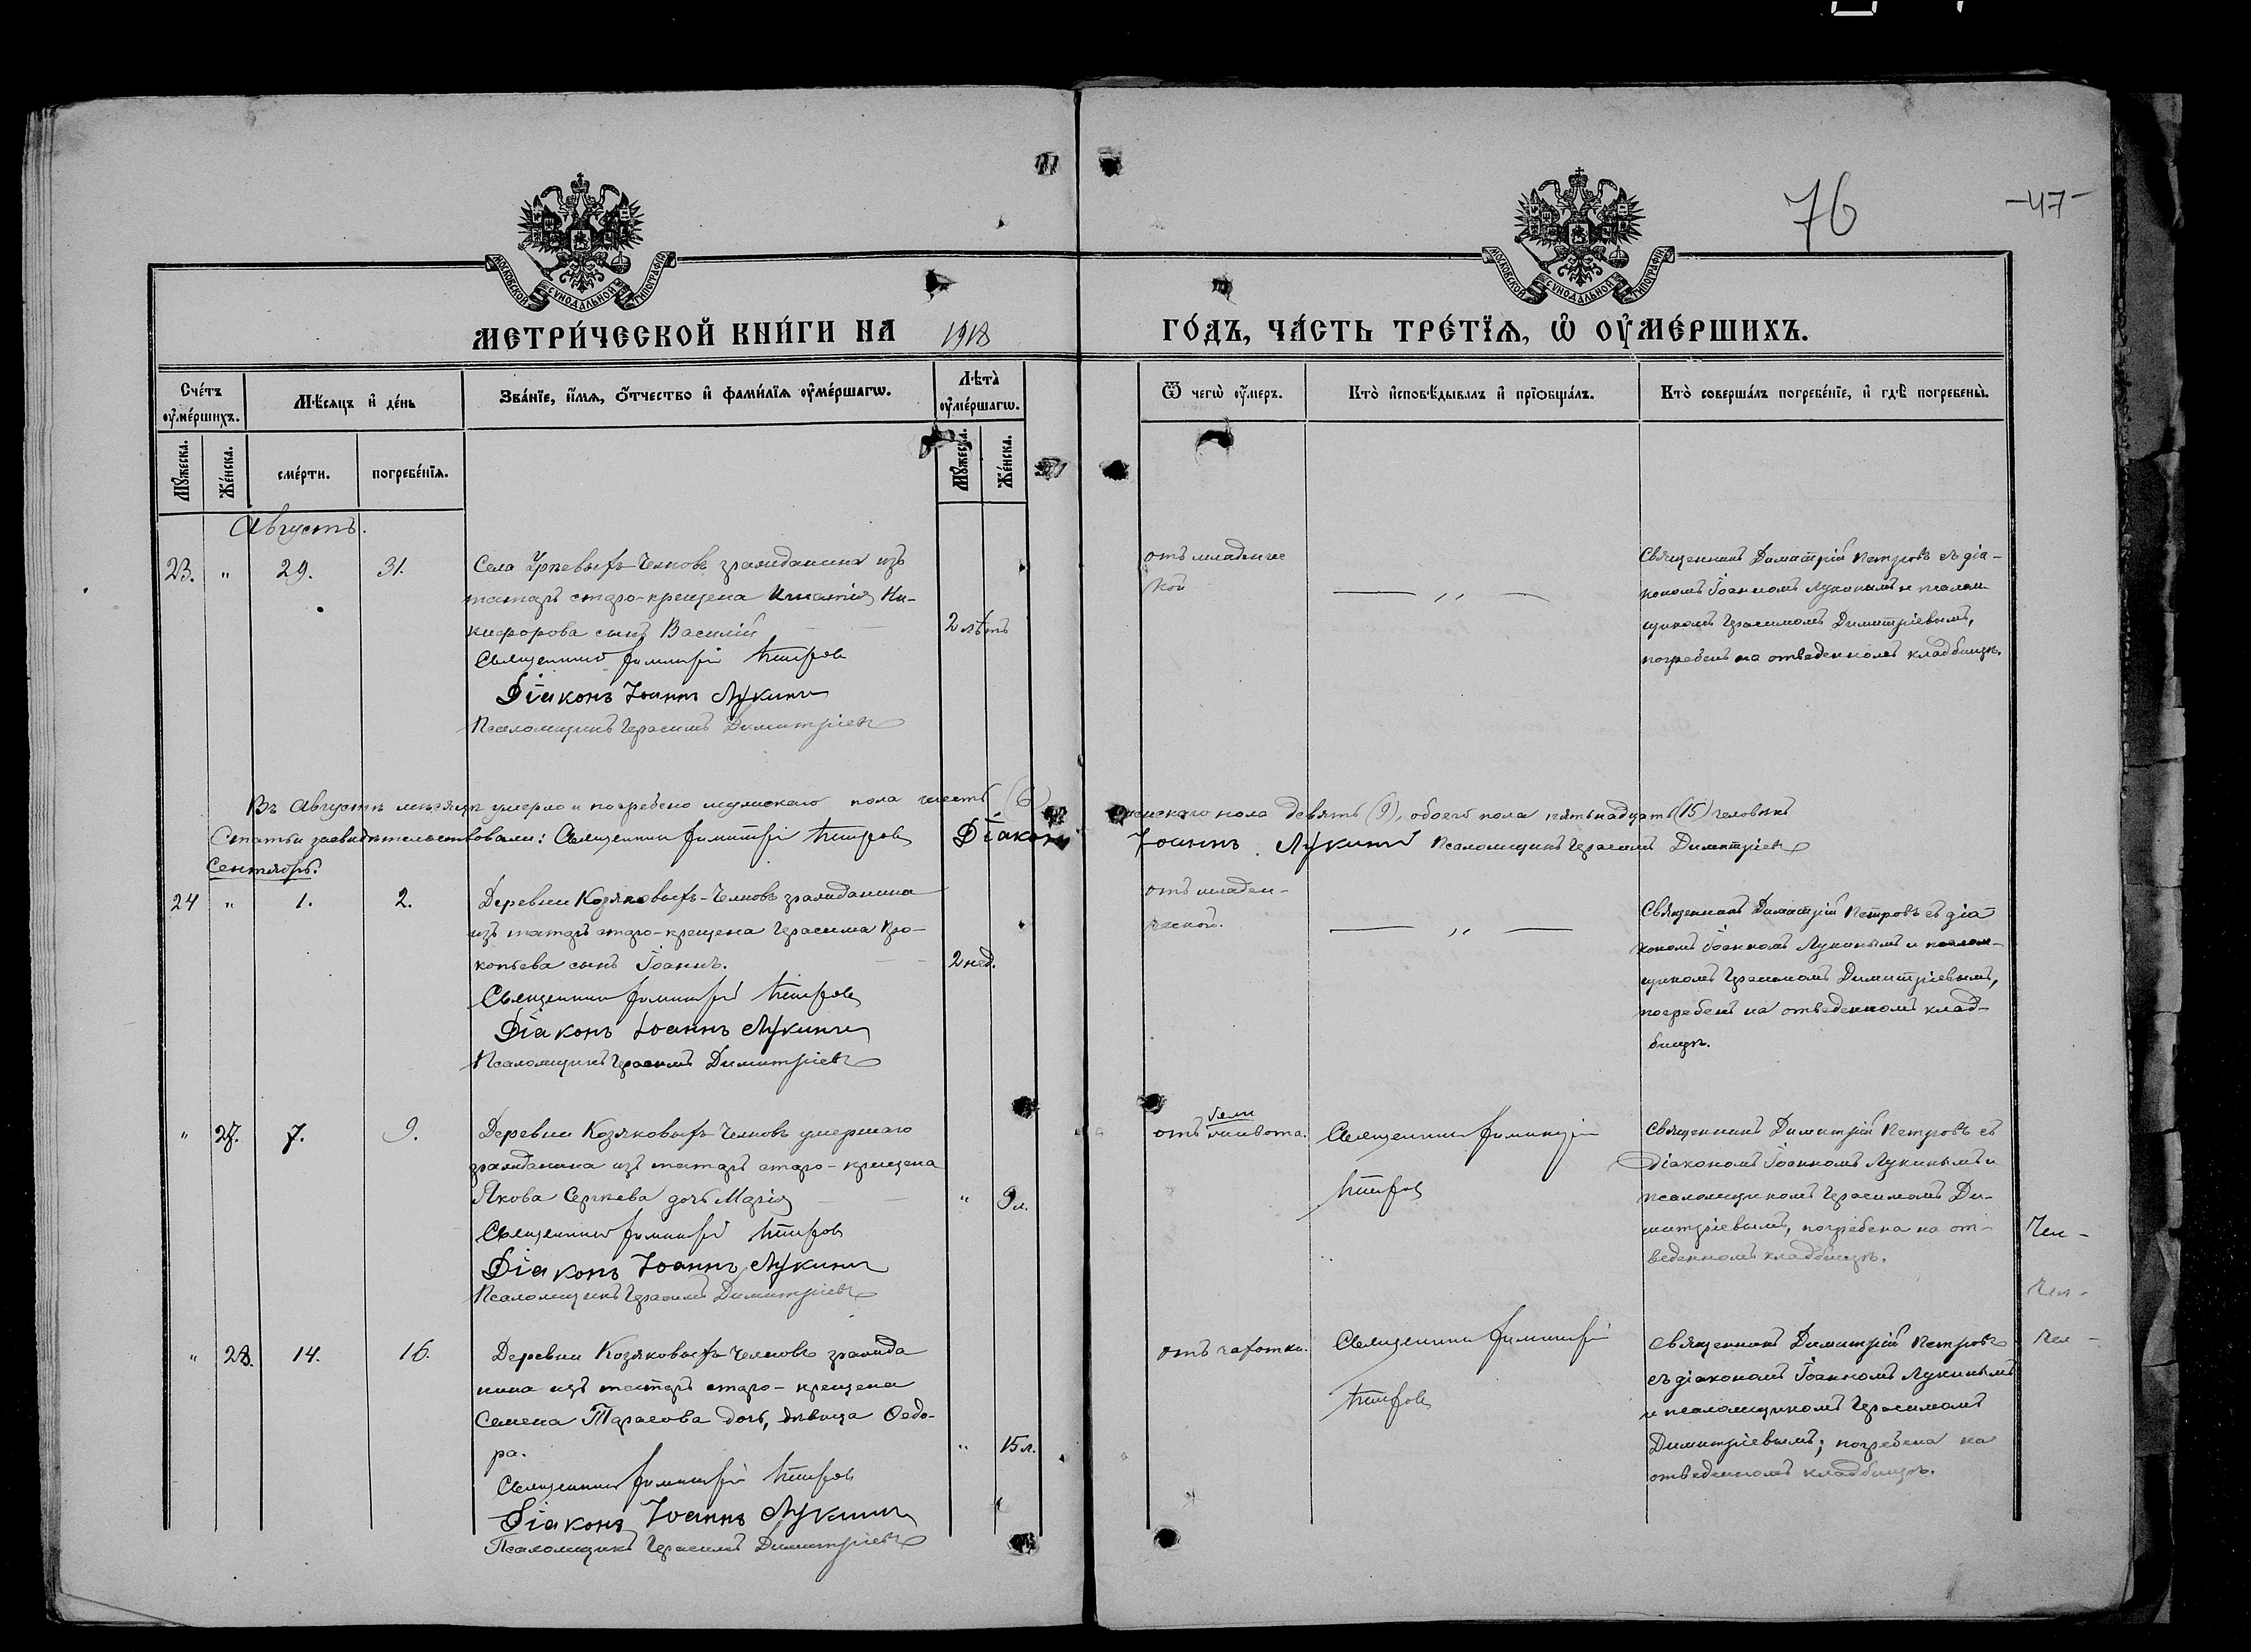 76
-47-
МОСКОВСКОЙ СУНОДАЛЬНОЙ ТИПОГРАФІИ
МОСКОВСКОЙ СУНОДАЛЬНОЙ ТИПОГРАФІИ
МЕТРИ́ЧЕСКОЙ КНИ́ГИ НА 1918 ГО́ДЪ, ЧА́СТЬ ТРЕ́ТЇѦ, Ѡ҆ ОУ҆МЕ́РШИХЪ.
Сче́тъ оу҆ме́ршихъ.
Мѣ́сяцъ и҆ де́нь
Зва́нїе, и҆́мѧ, ѻ҆́тчество и҆ фами́лїѧ оу҆ме́ршагѡ.
Лѣ́та оу҆ме́ршагѡ.
Ѿ чегѡ̀ оу҆́меръ.
Кто̀ и҆сповѣ́дывалъ и҆ прїѻбща́лъ.
Кто̀ соверша́лъ погребе́нїе, и҆ гдѣ̀ погребены̀.
Мꙋ́жеска.
Же́нска.
сме́рти.
погребе́нїѧ.
Мꙋ́жеска.
Же́нска.
Августъ.
23. " 29. 31.
Села Уркевыхъ-Челновъ гражданина изъ
татаръ старо-крещена Игнатія Ни-
кифорова сынъ Василій
2 лѣтъ
Священникъ Димитрій Петровъ
Діаконъ Іоаннъ Лукинъ
Псаломщикъ Герасимъ Димитріевъ
отъ младенче
ской
— " —
Священникъ Димитрій Петровъ съ діа-
кономъ Іоанномъ Лукинымъ и псалом-
щикомъ Герасимомъ Димитріевымъ,
погребенъ на отведенномъ кладбищѣ.
Въ Августѣ мѣсяцѣ умерло и погребено мужскаго пола шесть (6) женскаго пола девять (9), обоего пола пятьнадцать (15) человѣкъ
Статьи засвидѣтельствовали: Священникъ Димитрій Петровъ Діаконъ Іоаннъ Лукинъ Псаломщикъ Герасимъ Димитріевъ
Сентябрь.
24 " 1. 2.
Деревни Козяковыхъ-Челновъ гражданина
изъ татаръ старо-крещена Герасима Про-
копьева сынъ Іоаннъ.
2 нед.
Священникъ Димитрій Петровъ
Діаконъ Іоаннъ Лукинъ
Псаломщикъ Герасимъ Димитріевъ
отъ младен-
ческой.
— " —
Священникъ Димитрій Петровъ съ діа-
кономъ Іоанномъ Лукинымъ и псалом-
щикомъ Герасимомъ Димитріевымъ,
погребенъ на отведенномъ клад-
бищѣ.
" 27. 7. 9.
Деревни Козяковыхъ Челновъ умершаго
гражданина изъ татаръ старо-крещена
Якова Сергѣева дочь Марія
" 9 л.
Священникъ Димитрій Петровъ
Діаконъ Іоаннъ Лукинъ
Псаломщикъ Герасимъ Димитріевъ
отъ живота.
Священникъ Димитрій
Петровъ
Священникъ Димитрій Петровъ съ
Діакономъ Іоанномъ Лукинымъ и
псаломщикомъ Герасимомъ Ди-
митріевымъ, погребена на от-
веденномъ кладбищѣ.
Чел -
Чел -
" 28. 14. 16.
Деревни Козяковыхъ Челновъ гражда
нина изъ татаръ старо-крещена
Семена Тарасова дочь, дѣвица Ѳедо-
ра.
" 15 л.
Священникъ Димитрій Петровъ
Діаконъ Іоаннъ Лукинъ
Псаломщикъ Герасимъ Димитріевъ
отъ чахотки.
Священникъ Димитрій
Петровъ
Священникъ Димитрій Петровъ
съ діакономъ Іоанномъ Лукинымъ
и псаломщикомъ Герасимомъ
Димитріевымъ; погребена на
отведенномъ кладбищѣ.
Чел -